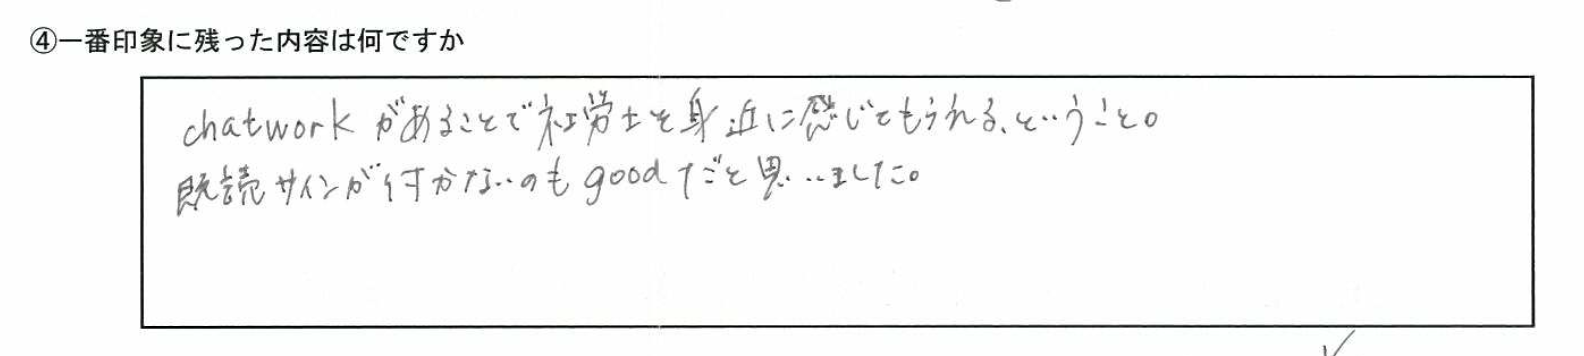 ④一番印象に残った内容は何ですか
chatworkがあることで社労士を身近に感じてもらえる、ということ。
既読サインが付かないのもgoodだと思いました。